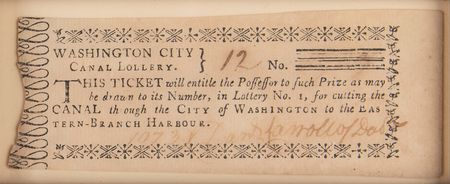 WASHINGTON CITY } 12 No.
CANAL LOLLERY.
THIS TICKET will entitle the Poſſeſſor to ſuch Prize as may
be drawn to its Number, in Lottery No. 1, for cutting the
CANAL th ough the CITY of WASHINGTON to the EAS
TERN-BRANCH HARBOUR.